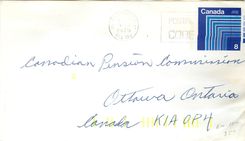 Canada
8
POSTAL
CODE
Canadian Pension Commission
Ottawa Ontario
Canada K1A 0P4